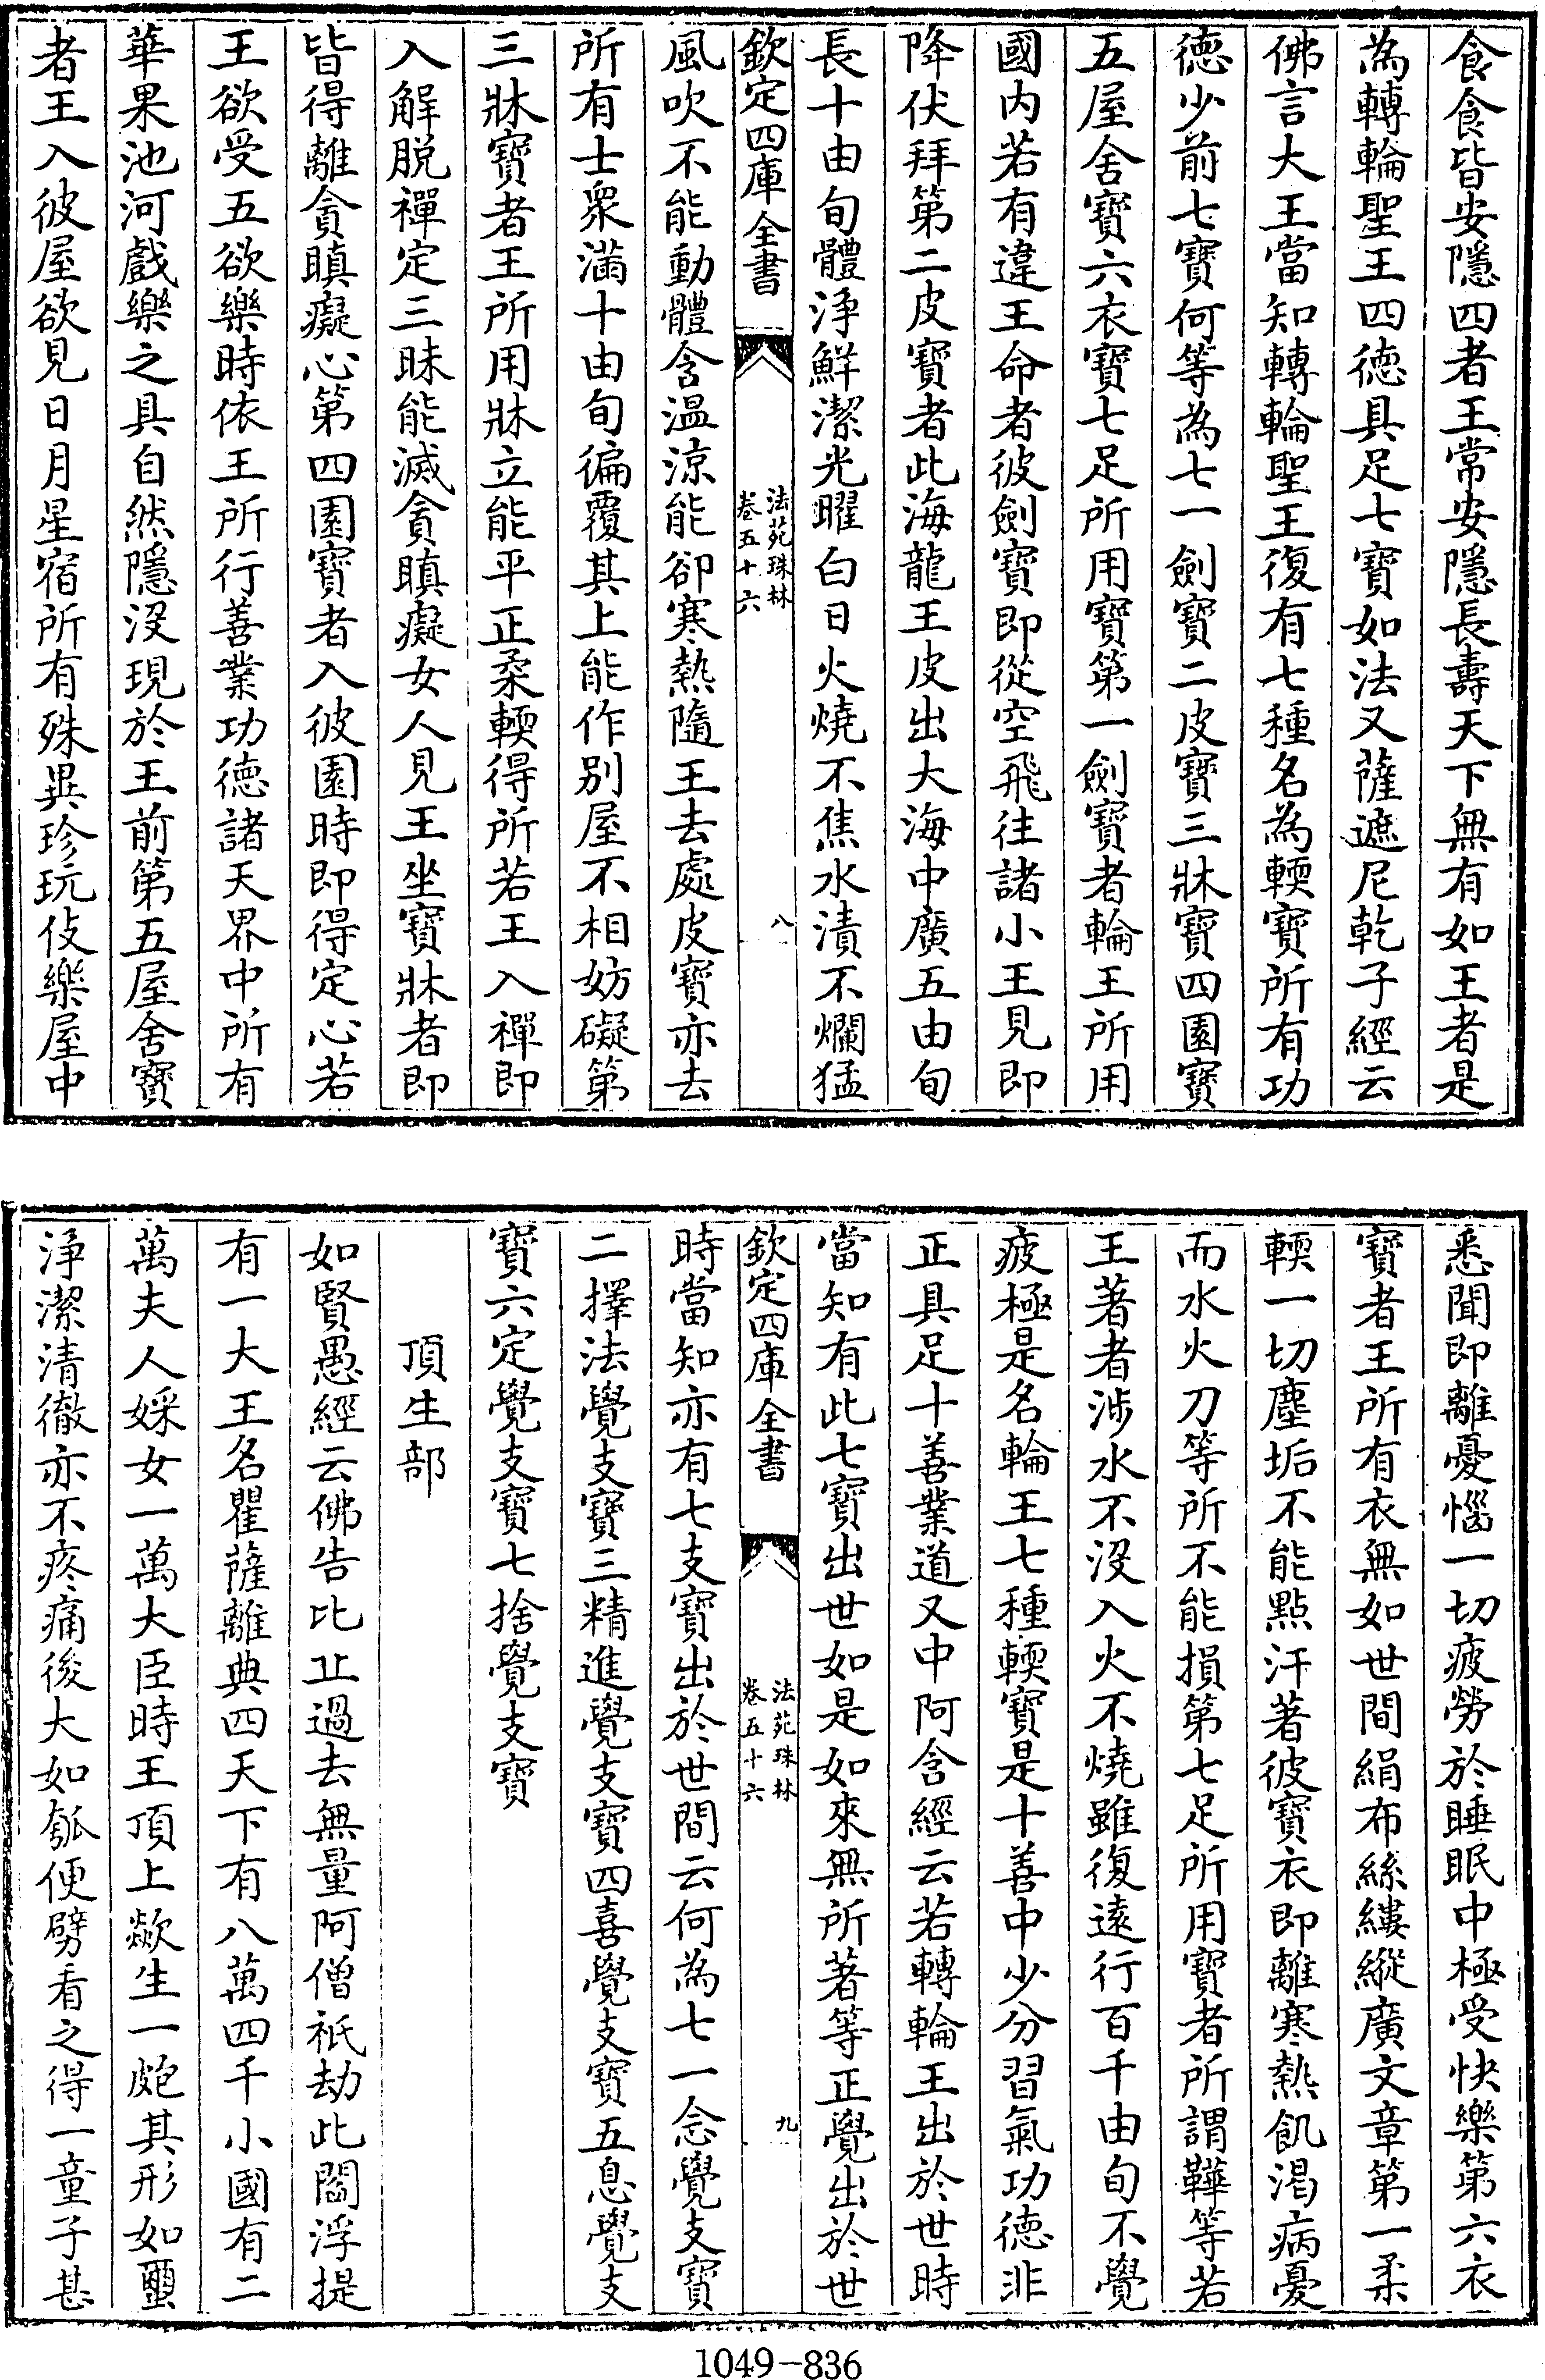 食食皆安隱四者王常安隱長壽天下無有如王者是
為轉輪聖王四德具足七寶如法又薩遮尼乾子經云
佛言大王當知轉輪聖王復有七種名為輭寶所有功
德少前七寶何等為七一劍寶二皮寶三牀寶四園寶
五屋舍寶六衣寶七足所用寶第一劍寶者輪王所用
國内若有違王命者彼劍寶即從空飛往諸小王見即
降伏拜第二皮寶者此海龍王皮出大海中廣五由旬
長十由旬體淨鮮潔光曜白日火燒不焦水漬不爛猛
欽定四庫全書
法苑珠林
卷五十六
八
風吹不能動體含温涼能卻寒熱隨王去處皮寶亦去
所有士衆滿十由旬徧覆其上能作别屋不相妨礙第
三牀寶者王所用牀立能平正柔輭得所若王入禪即
入解脱禪定三昧能滅貪瞋癡女人見王坐寶牀者即
皆得離貪瞋癡心第四園寶者入彼園時即得定心若
王欲受五欲樂時依王所行善業功德諸天界中所有
華果池河戲樂之具自然隱没現於王前第五屋舍寶
者王入彼屋欲見日月星宿所有殊異珍玩伎樂屋中
悉聞即離憂惱一切疲勞於睡眠中極受快樂第六衣
寶者王所有衣無如世間絹布絲縷縱廣文章第一柔
輭一切塵垢不能點汗著彼寶衣即離寒熱飢渇病憂
而水火刀等所不能損第七足所用寶者所謂鞾等若
王著者涉水不没入火不燒雖復遠行百千由旬不覺
疲極是名輪王七種輭寶是十善中少分習氣功德非
正具足十善業道又中阿含經云若轉輪王出於世時
當知有此七寶出世如是如來無所著等正覺出於世
欽定四庫全書
法苑珠林
卷五十六
九
時當知亦有七支寶出於世間云何為七一念覺支寶
二擇法覺支寶三精進覺支寶四喜覺支寶五息覺支
寶六定覺支寶七捨覺支寶
頂生部
如賢愚經云佛告比丘過去無量阿僧祇劫此閻浮提
有一大王名瞿薩離典四天下有八萬四千小國有二
萬夫人婇女一萬大臣時王頂上歘生一皰其形如𧆀
淨潔清徹亦不疼痛後大如瓠便劈看之得一童子甚
1049-836